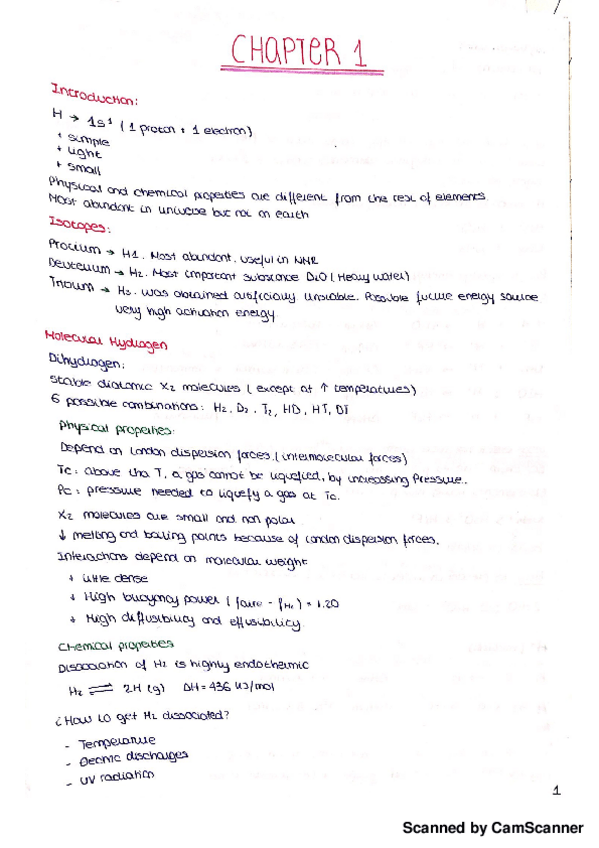 CHAPTER 1
Introduction:
H → 1s¹ (1 proton + 1 electron)
+ simple
+ light
+ small
Physical and chemical properties are different from the rest of elements
Most abundant in universe but not on earth
Isotopes:
Protium → H1. Most abundant. useful in NMR
Deuterium → H2. Most important substance D₂O (Heavy water)
Tritium → H3. Was obtained artificially unstable. Possible future energy source
very high activation energy
Molecular Hydrogen
Dihydrogen:
Stable diatomic X₂ molecules (except at ↑ temperatures)
6 possible combinations: H₂, D₂, T₂, HD, HT, DT
Physical properties:
Depend on London dispersion forces. (intermolecular forces)
Tc: above that T, a gas cannot be liquefied, by increasing Pressure.
Pc: pressure needed to liquefy a gas at Tc.
X₂ molecules are small and non polar
↓ melting and boiling points because of London dispersion forces.
Interactions depend on molecular weight
+ little dense
+ High buoyancy power ( - ) = 1.20
+ High diffusibility and effusibility
Chemical properties
Dissociation of H₂ is highly endothermic
H₂ ⇌ 2H (g) ΔH = 436 kJ/mol
¿How to get H₂ dissociated?
- Temperature
- Electric discharges
- UV radiation
1
Scanned by CamScanner